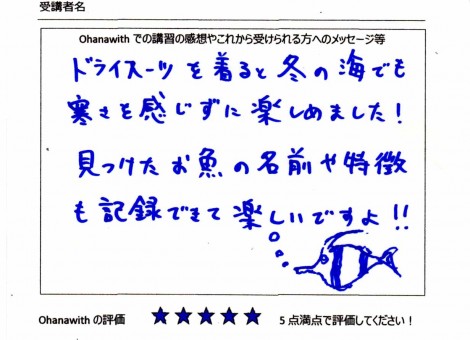 受講者名
Ohanawith での講習の感想やこれから受けられる方へのメッセージ等
ドライスーツを着ると冬の海でも
寒さを感じずに楽しめました!
見つけたお魚の名前や特徴
も記録できて楽しいですよ!!
Ohanawith の評価 ★★★★★ 5 点満点で評価してください!